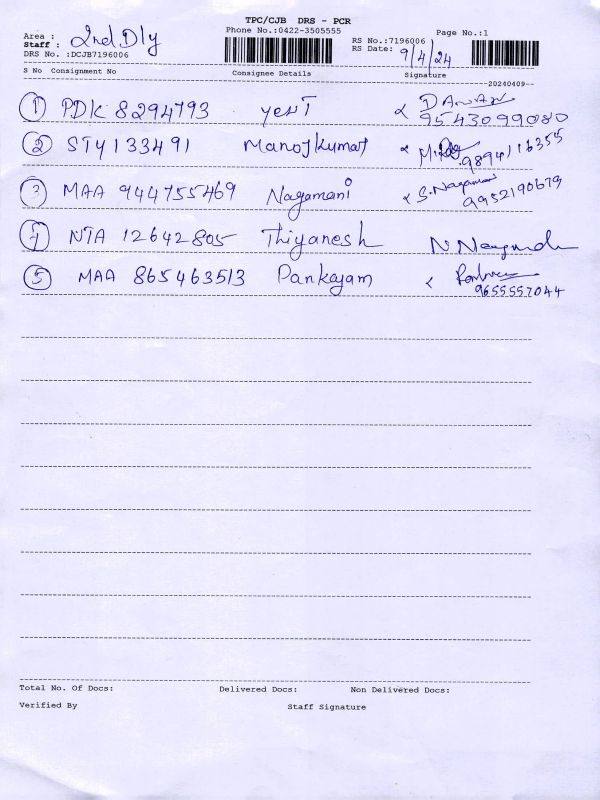 TPC/CJB DRS - PCR
Phone No.:0422-3505555
Page No.:1
Area :
Staff : 2nd Dly
DRS No. :DCJB7196006
RS No.:7196006
RS Date: 9/4/24
S No Consignment No Consignee Details Signature
20240409
1 PDK 8294793 yesT
9543099080
2 STY133491 Manojkumar
9894116355
3 MAA 944755469 Nagamani S.Nagamani
9952190679
4 NTA 12642805 Thiyanesh
5 MAA 865463513 Pankajam
9655557044
Total No. Of Docs: Delivered Docs: Non Delivered Docs:
Verified By Staff Signature